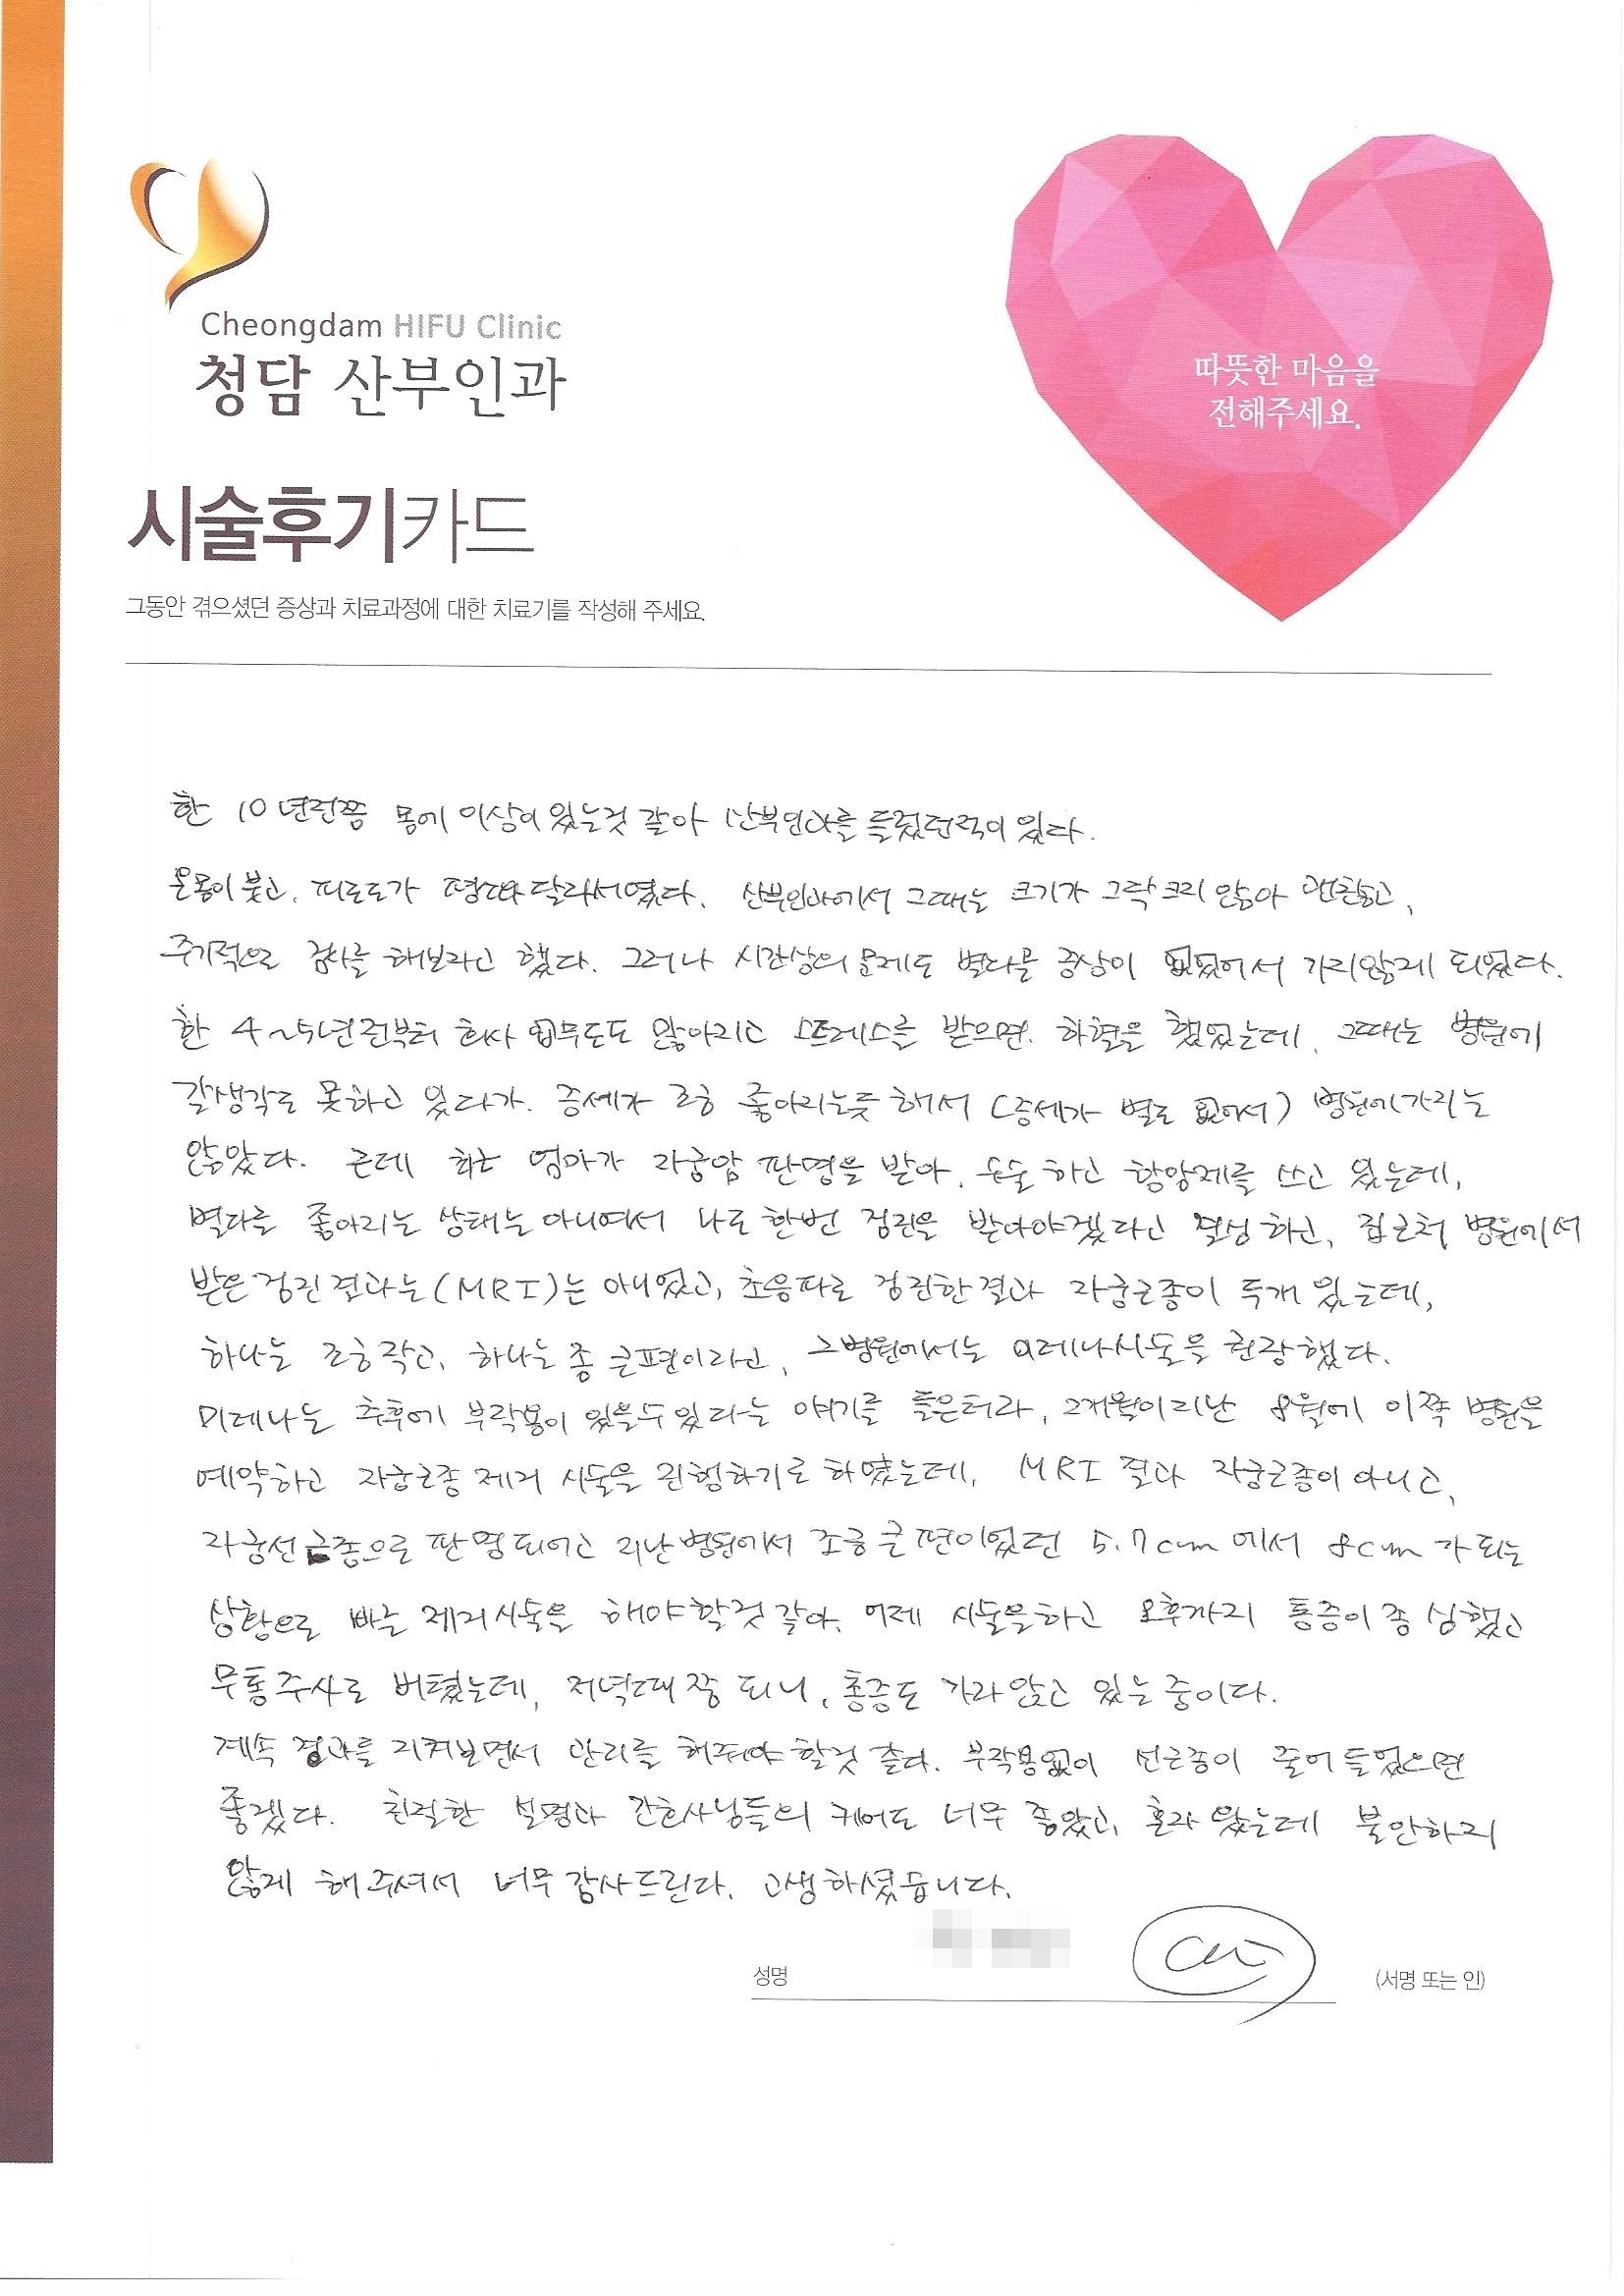 Cheongdam HIFU Clinic
청담 산부인과
따뜻한 마음을
전해주세요.
시술후기카드
그동안 겪으셨던 증상과 치료과정에 대한 치료기를 작성해 주세요.
한 10년전쯤 몸에 이상이 있는것 같아 산부인과를 들렀던적이 있다.
온몸이 붓고, 피로도가 평소와 달라서였다. 산부인과에서 그때는 크기가 그닥 크지 않아 괜찮고,
주기적으로 검사를 해보라고 했다. 그러나 시간상의 문제도 별다른 증상이 없었어서 가지않게 되었다.
한 4~5년전부터 회사 업무도도 많아지고 스트레스를 받으면 하혈을 했었는데, 그때는 병원에
갈생각도 못하고 있다가. 증세가 조금 좋아지는듯 해서 (증세가 별로 없어서) 병원에가지는
않았다. 근데 최근 엄마가 자궁암 판명을 받아, 수술 하고 항암제를 쓰고 있는데,
별다를 좋아지는 상태는 아니여서 나도 한번 검진을 받아야겠다고 결심 하고, 집근처 병원에서
받은 검진결과는 (MRI)는 아니었고, 초음파로 검진한결과 자궁근종이 두개 있는데,
하나는 조금작고, 하나는 좀 큰편이라고, 그병원에서는 미레나시술을 권장했다.
미레나는 추후에 부작용이 있을수있다는 얘기를 들은터라, 2개월이지난 8월에 이쪽 병원을
예약하고 자궁근종 제거 시술을 진행하기로 하였는데, MRI 결과 자궁근종이 아니고,
자궁선근종으로 판명되어고 지난병원에서 조금 큰편이었던 5.7cm 에서 8cm 가 되는
상황으로 빠른 제거시술을 해야할것 같아. 어제 시술을하고 오후까지 통증이 좀 심했고
무통주사로 버텼는데, 저녁때쯤 되니, 통증도 가라앉고 있는중이다.
계속 경과를 지켜보면서 관리를 해줘야 할것 같다. 부작용없이 선근종이 줄어들었으면
좋겠다. 친절한 설명과 간호사님들의 케어도 너무 좋았고, 혼자 왔는데 불안하지
않게 해주셔서 너무 감사드린다. 고생하셨습니다.
성명 (서명 또는 인)